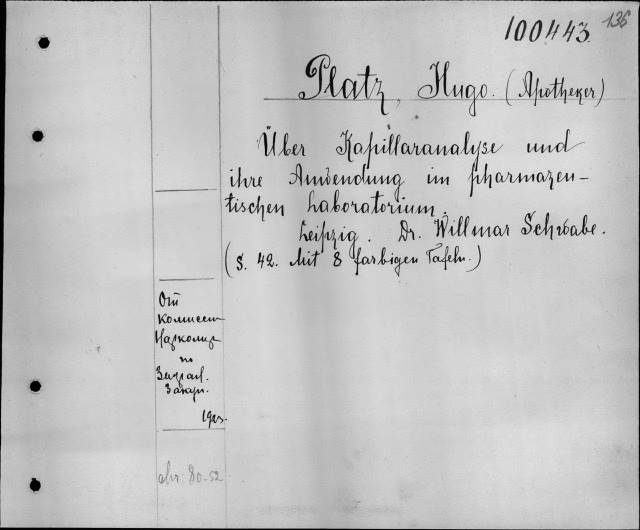 100443. 136
Platz, Hugo. (Apotheker)
Über Kapillaranalyse und
ihre Anwendung im pharmazen-
tischen Laboratorium.
Leipzig. Dr. Willmar Schwabe.
(S. 42. Mit 8 farbigen Tafeln.)
От
Комиссии
по
Закавк.
192
abr. 80-52